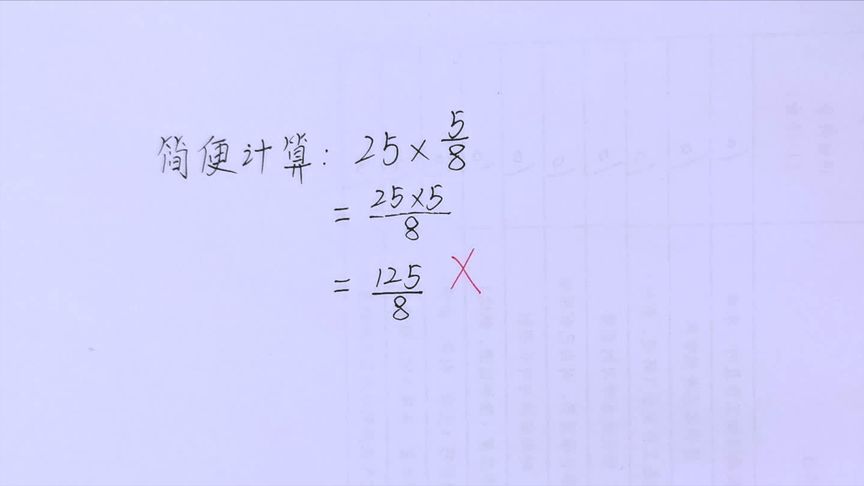 简便计算: 25×5/8
= 25×5/8
= 125/8 ×